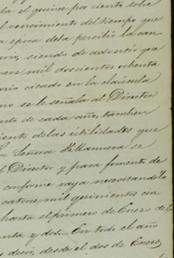 el quince por ciento sobre
el vencimiento del tiempo que
epoca deba percibir la can
siendo de advertir que
mil doscientos ochenta
citado en la clausula
no se le señala al Director
de cada año, tambien
de las utilidades que
Señora Villanueva se
Director y para fomento de
conforme vaya necesitandolo
catorce mil quinientos cin
hasta el primero de Enero de
y dos. En todo el año
decir, desde el dos de Enero